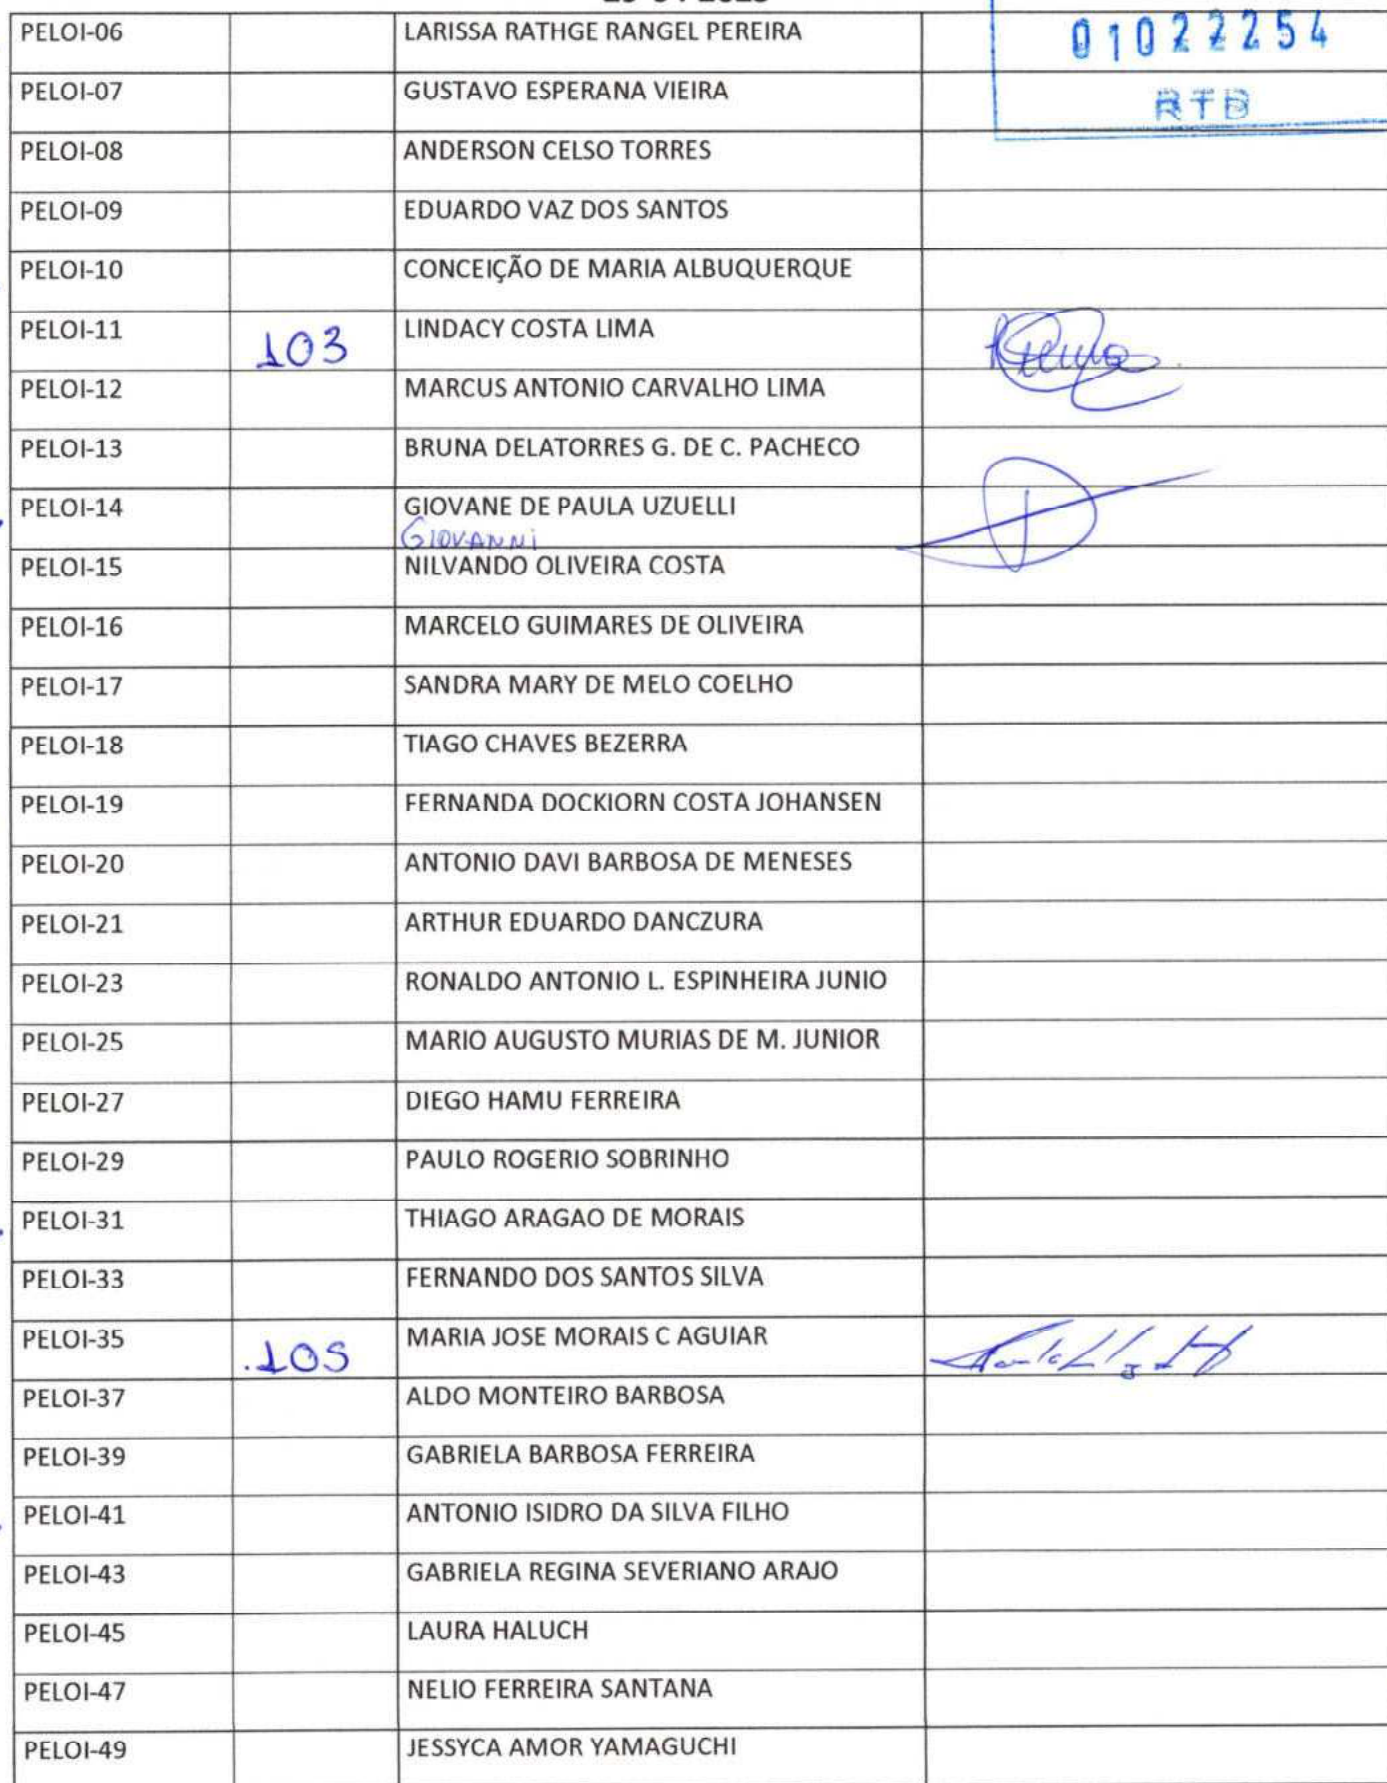 PELOI-06 LARISSA RATHGE RANGEL PEREIRA 01022254
PELOI-07 GUSTAVO ESPERANA VIEIRA RTB
PELOI-08 ANDERSON CELSO TORRES
PELOI-09 EDUARDO VAZ DOS SANTOS
PELOI-10 CONCEIÇÃO DE MARIA ALBUQUERQUE
PELOI-11 103 LINDACY COSTA LIMA
PELOI-12 MARCUS ANTONIO CARVALHO LIMA
PELOI-13 BRUNA DELATORRES G. DE C. PACHECO
PELOI-14 GIOVANE DE PAULA UZUELLI
GIOVANNI
PELOI-15 NILVANDO OLIVEIRA COSTA
PELOI-16 MARCELO GUIMARES DE OLIVEIRA
PELOI-17 SANDRA MARY DE MELO COELHO
PELOI-18 TIAGO CHAVES BEZERRA
PELOI-19 FERNANDA DOCKIORN COSTA JOHANSEN
PELOI-20 ANTONIO DAVI BARBOSA DE MENESES
PELOI-21 ARTHUR EDUARDO DANCZURA
PELOI-23 RONALDO ANTONIO L. ESPINHEIRA JUNIO
PELOI-25 MARIO AUGUSTO MURIAS DE M. JUNIOR
PELOI-27 DIEGO HAMU FERREIRA
PELOI-29 PAULO ROGERIO SOBRINHO
PELOI-31 THIAGO ARAGAO DE MORAIS
PELOI-33 FERNANDO DOS SANTOS SILVA
PELOI-35 .105 MARIA JOSE MORAIS C AGUIAR
PELOI-37 ALDO MONTEIRO BARBOSA
PELOI-39 GABRIELA BARBOSA FERREIRA
PELOI-41 ANTONIO ISIDRO DA SILVA FILHO
PELOI-43 GABRIELA REGINA SEVERIANO ARAJO
PELOI-45 LAURA HALUCH
PELOI-47 NELIO FERREIRA SANTANA
PELOI-49 JESSYCA AMOR YAMAGUCHI